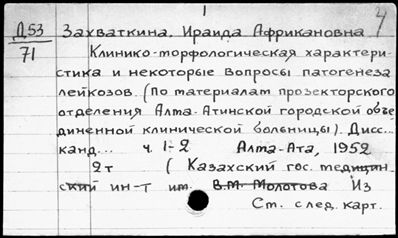 1
Д.53 Захваткина, Ираида Африкановна 4
71 Клинико-морфологическая характери-
стика и некоторые вопросы патогенеза
лейкозов. (По материалам прозекторского
отделения Алма-Атинской городской объе
диненной клинической больницы). Дисс...
канд... ч. 1-2 Алма-Ата, 1952
2т (Казахский гос. медицин-
ский ин-т им. В.М. Молотова Из
См. след. карт.